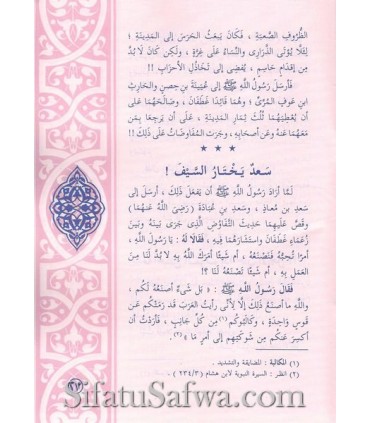 الظُّرُوفِ الصَّعْبَةِ ، فَكَانَ يَبْعَثُ الحَرَسَ إِلَى المَدِينَةِ ؛
لِئَلَّا يُؤْتَى الذَّرَارِي وَالنِّسَاءُ عَلَى غِرَّةٍ ، وَلَكِنْ كَانَ لَا بُدَّ
مِن إِقْدَامٍ حَاسِمٍ ، يُفْضِي إِلَى تَخَاذُلِ الأَحْزَابِ !!
فَأَرْسَلَ رَسُولُ اللَّهِ ﷺ إِلَى عُيَيْنَةَ بنِ حِصنٍ وَالحَارِثِ
ابنِ عَوفٍ المُرِّيِّ ؛ وَهُمَا قَائِدَا غَطَفَانَ ، وَصَالَحَهُمَا عَلَى
أَن يُعْطِيَهُمَا ثُلُثَ ثِمَارِ المَدِينَةِ ، عَلَى أَن يَرجِعَا بِمَن
مَعَهُمَا عَنهُ وَعَن أَصحَابِهِ ، وَجَرَت المُفَاوَضَاتُ عَلَى ذَلِكَ !!
* * *
سَعدٌ يَخْتَارُ السَّيْفَ !
لَمَّا أَرَادَ رَسُولُ اللَّهِ ﷺ أَن يَفعَلَ ذَلِكَ ، أَرسَلَ إِلَى
سَعدِ بنِ مُعاذٍ ، وَسَعدِ بنِ عُبَادَةَ (رَضِيَ اللَّهُ عَنهُمَا)
وَقَصَّ عَلَيهِمَا حَدِيثَ التَّفَاوُضِ الَّذِي جَرَى بَينَهُ وَبَينَ
زُعَمَاءِ غَطَفَانَ وَاستَشَارَهُمَا فِيهِ ، فَقَالَا لَهُ : يَا رَسُولَ اللَّهِ ،
أَمرًا تُحِبُّهُ فَنَصْنَعُهُ ، أَم شَيئًا أَمَرَكَ اللَّهُ بِهِ لَا بُدَّ لَنَا مِنَ
العَمَلِ بِهِ ، أَم شَيئًا تَصْنَعُهُ لَنَا ؟!
فَقَالَ رَسُولُ اللَّهِ ﷺ : « بَل شَيءٌ أَصنَعُهُ لَكُم ،
وَاللَّهِ مَا أَصنَعُ ذَلِكَ إِلَّا لِأَنِّي رَأَيتُ العَرَبَ قَد رَمَتْكُم عَن
قَوسٍ وَاحِدَةٍ ، وَكَالَبُوكُم (١) مِن كُلِّ جَانِبٍ ، فَأَرَدْتُ أَن
أَكسِرَ عَنكُم مِن شَوكَتِهِم إِلَى أَمرٍ مَا » (٢).
(١) المكالبة : المضايقة والتشديد .
(٢) انظر : السيرة النبوية لابن هشام (٢٣٤/٣) .
SifatuSafwa.com